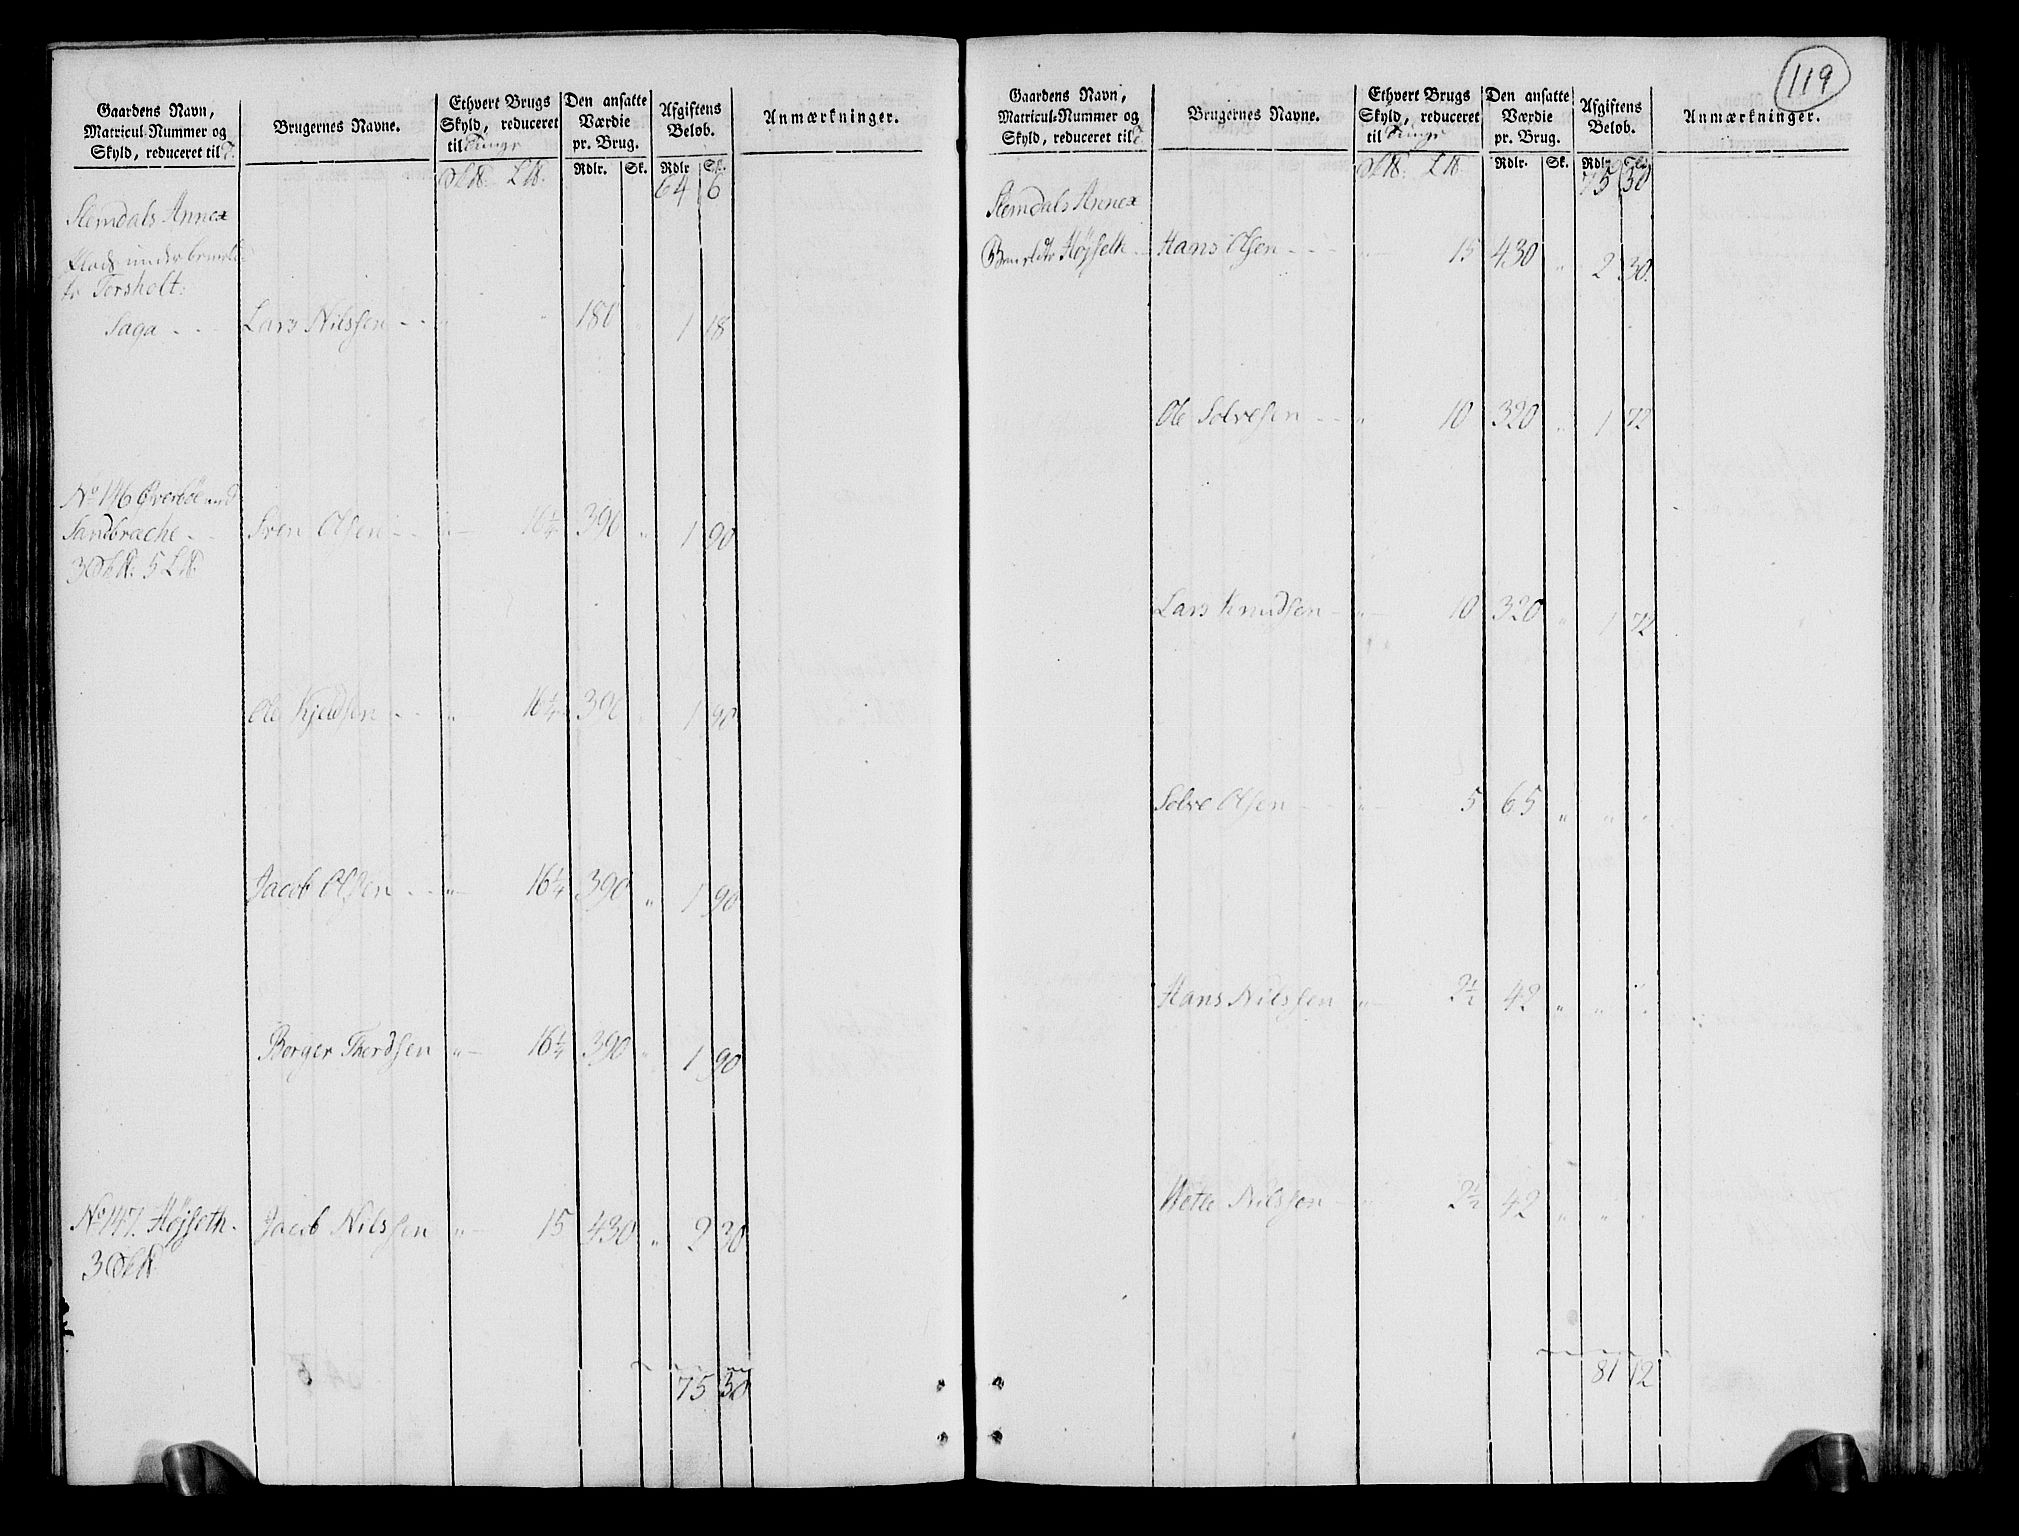 Gaardens Navn,
Matricul-Nummer og
Skyld, reduceret til
Brugernes Navne.
Ethvert Brugs
Skyld, reduceret
til Tunge
Den ansatte
Værdie
pr. Brug.
Afgiftens
Beløb.
Anmærkninger.
Rdlr. Sk. Rdlr Sk.
64 6
Slemdals Annex
Plads under
Torsholt:
Saga - - - Lars Nilssen - - " " 180 " 1 18
No 146 Øverbøe med
Sandbræche - - Sven Olsen - - " 16¼ 390 " 1 90
3 5
Ole Kjeldsen - - " 16¼ 390 " 1 90
Jacob Olsen - - " 16¼ 390 " 1 90
Borger Thordsen " 16¼ 390 " 1 90
No 147. Højseth. Jacob Nilssen " 15 430 " 2 30
3
75 30
119
Gaardens Navn,
Matricul-Nummer og
Skyld, reduceret til
Brugernes Navne.
Ethvert Brugs
Skyld, reduceret
til Tunge
Den ansatte
Værdie
pr. Brug.
Afgiftens
Beløb.
Anmærkninger.
Rdlr. Sk. Rdlr Sk.
75 30
Slemdals Annex
Højseth - Hans Olsen - - - " 15 430 " 2 30.
Ole Solvesen - - " 10 320 " 1 72
Lars Knudsen - " 10 320 " 1 72
Solve Olsen - - " 5 65 " " "
Hans Nilssen " 2½ 42 " " "
Nilssen - " 2½ 42 " " "
81 12